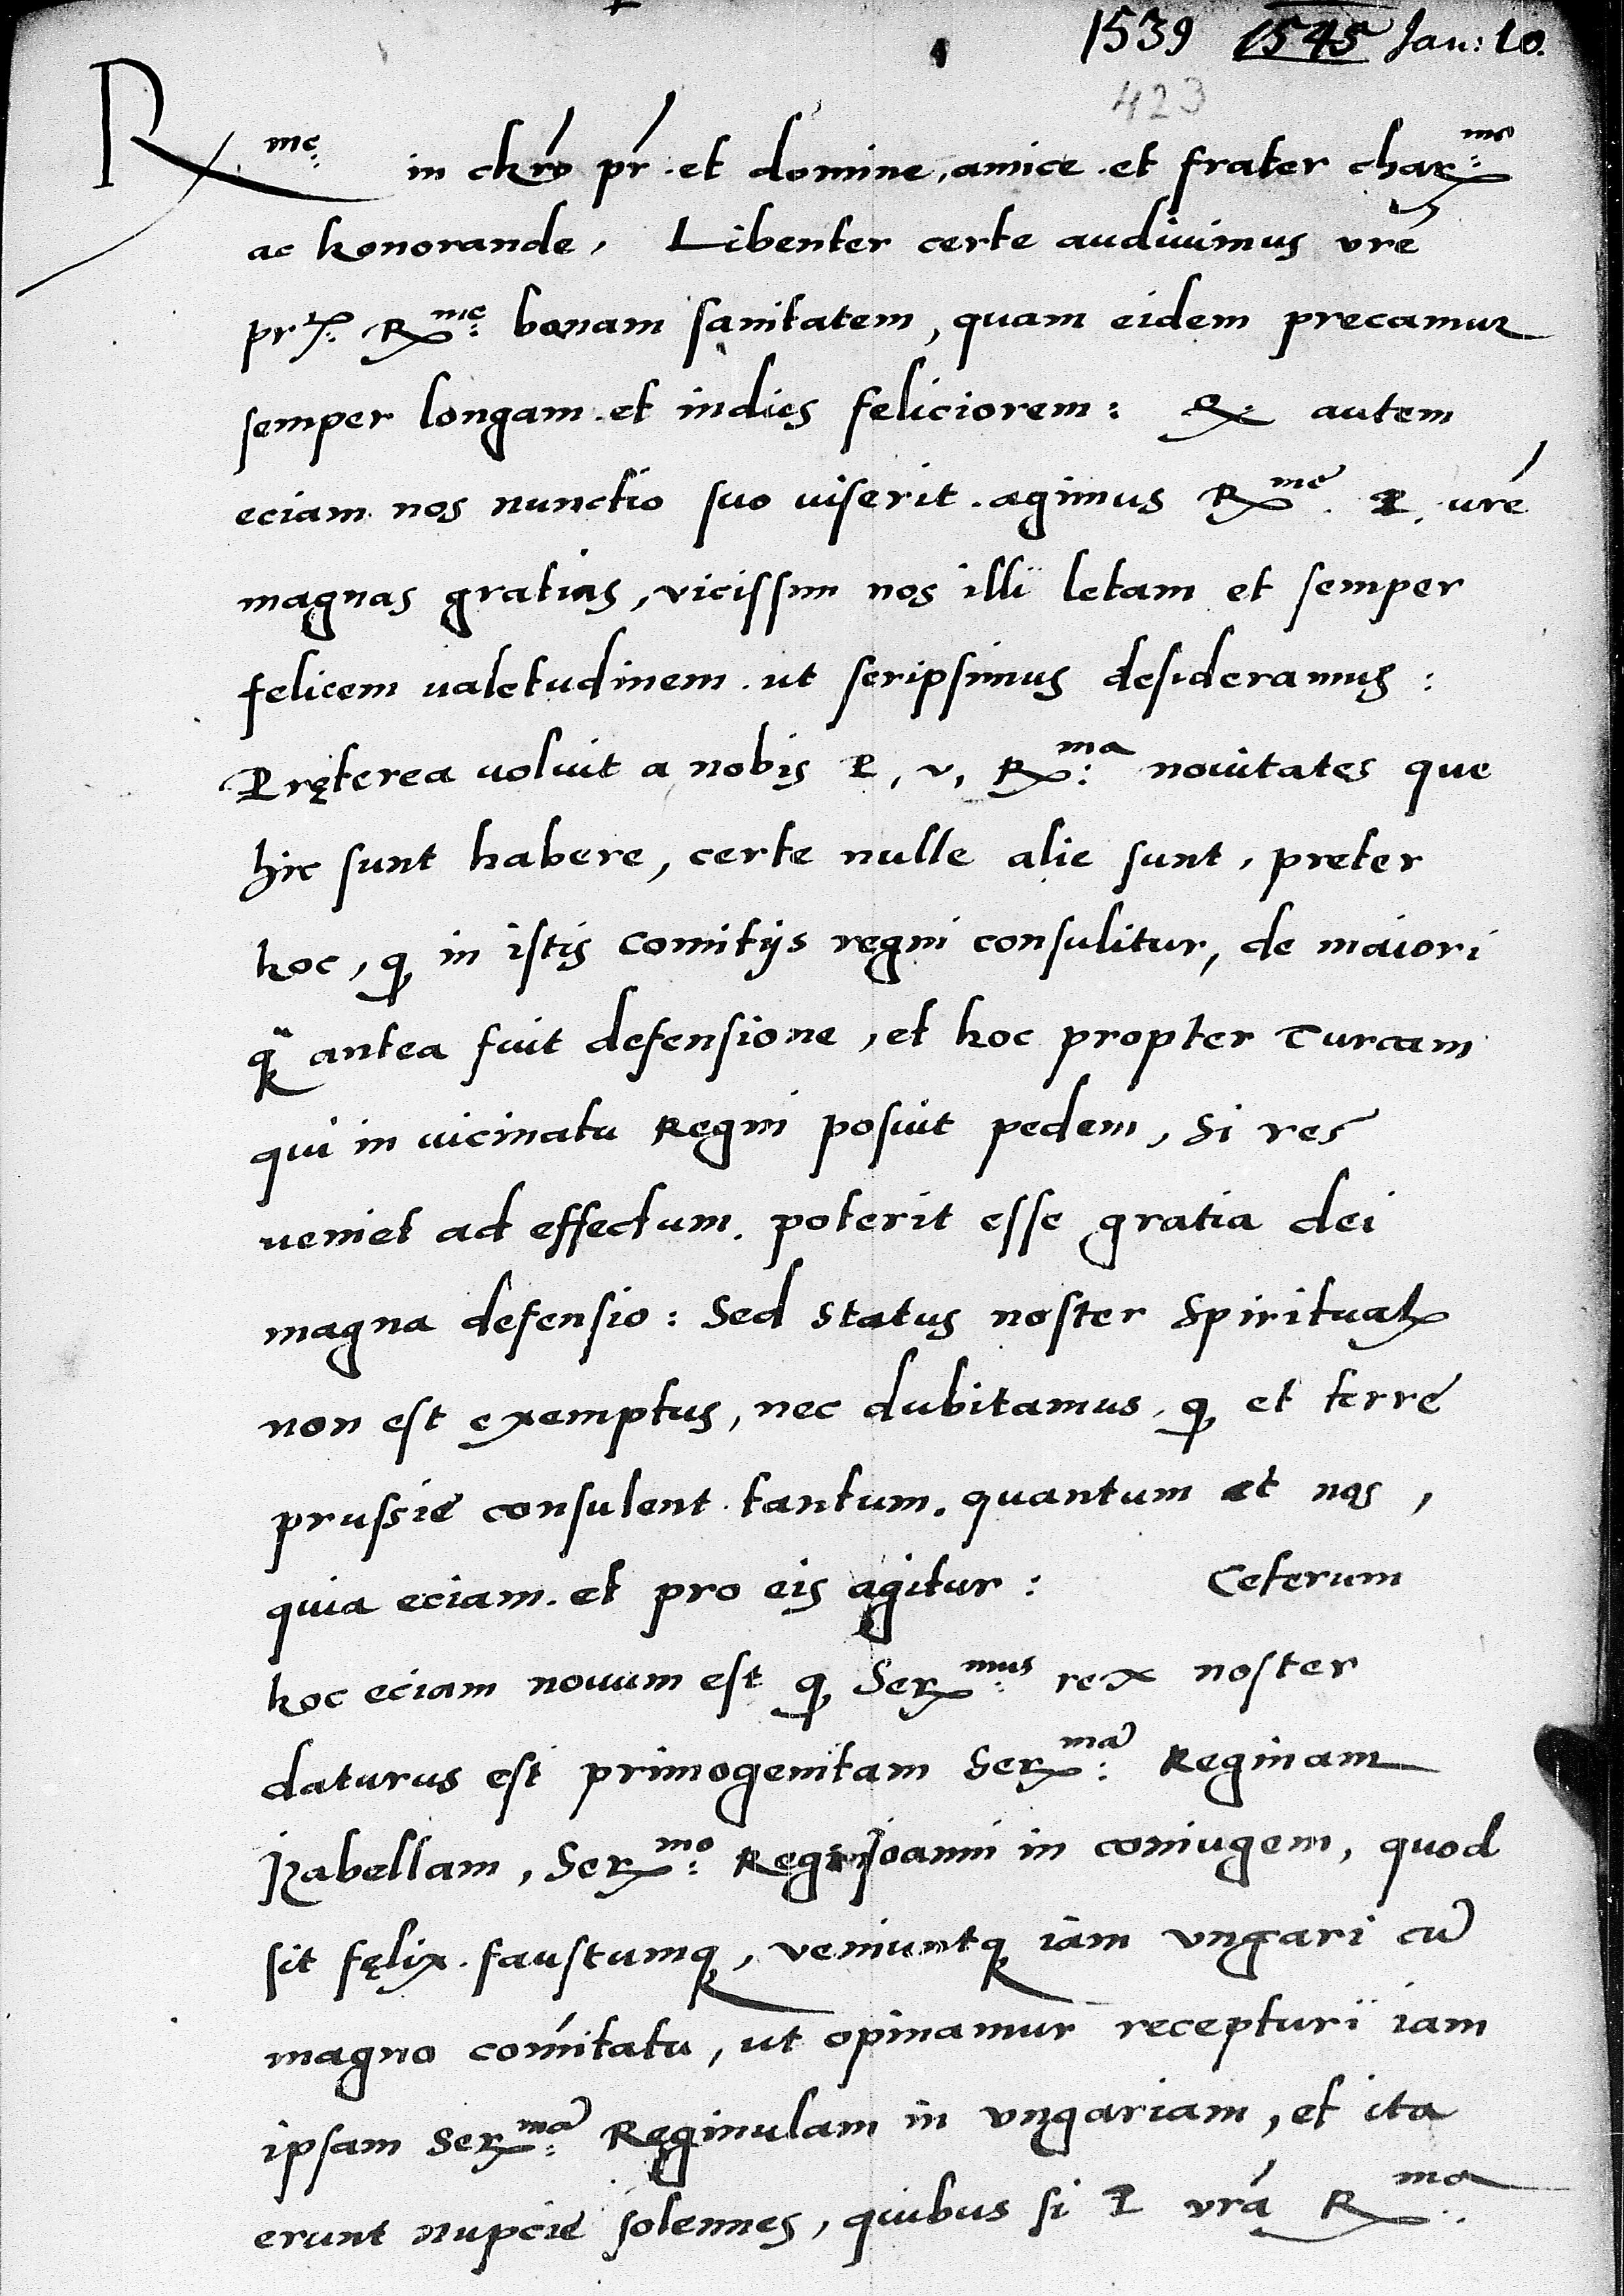 1539 1545 Jan: 10.
423
R.me in chro pr et domine, amice et frater char:me
ac honorande, Libenter certe audiuimus vre
pr: R:me bonam sanitatem, quam eidem precamur
semper longam et indies feliciorem: q autem
eciam nos nunctio suo viserit. agimus R:me P. vre
magnas gratias, vicissim nos illi letam et semper
felicem ualetudinem. ut scripsimus desideramus:
Pręterea voluit a nobis P, v, R:ma nouitates que
hic sunt habere, certe nulle alie sunt, preter
hoc, q in istis comitijs regni consulitur, de maiori
q̃ antea fuit defensione, et hoc propter Turcam
qui in uicinatu Regni posuit pedem, Si res
ueniet ad effectum. poterit esse gratia dei
magna defensio: Sed Status noster Spiritual
non est exemptus, nec dubitamus, q et terre
prussie consulent tantum. quantum et nos,
quia eciam. et pro eis agitur: Ceterum
hoc eciam nouum est q Ser:mus rex noster
daturus est primogenitam Ser:ma Reginam
Izabellam, Ser:mo Regi Joanni in coniugem, quod
sit fęlix. faustumq, veniuntq iam vngari cu
magno comitatu, ut opinamur recepturi iam
ipsam Ser:ma Reginulam in vngariam, et ita
erunt nupcie solennes, quibus si P vra R:ma